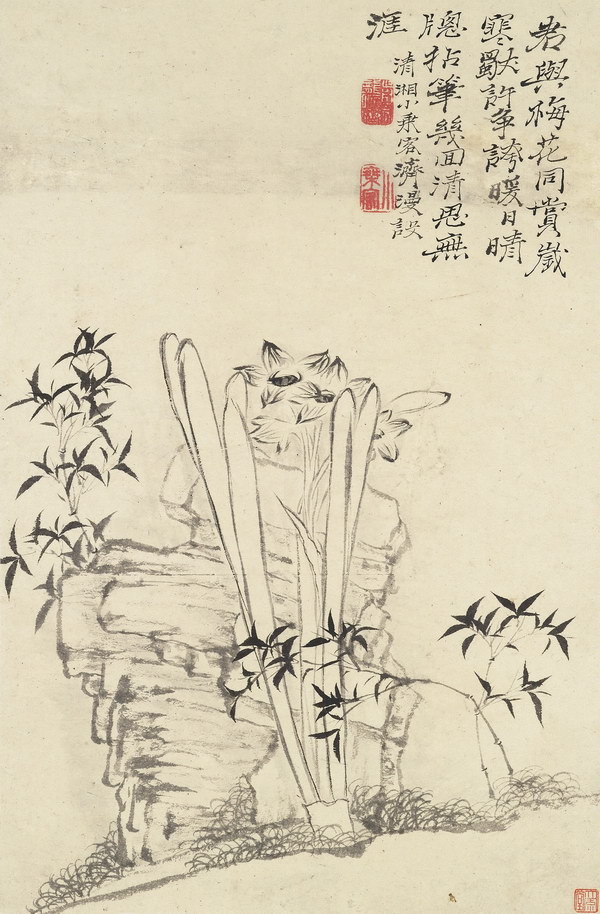 君與梅花同賞歲
寒獨許争誇暖日晴
牕拈筆幾回清思無
涯
清湘小乘客濟漫設